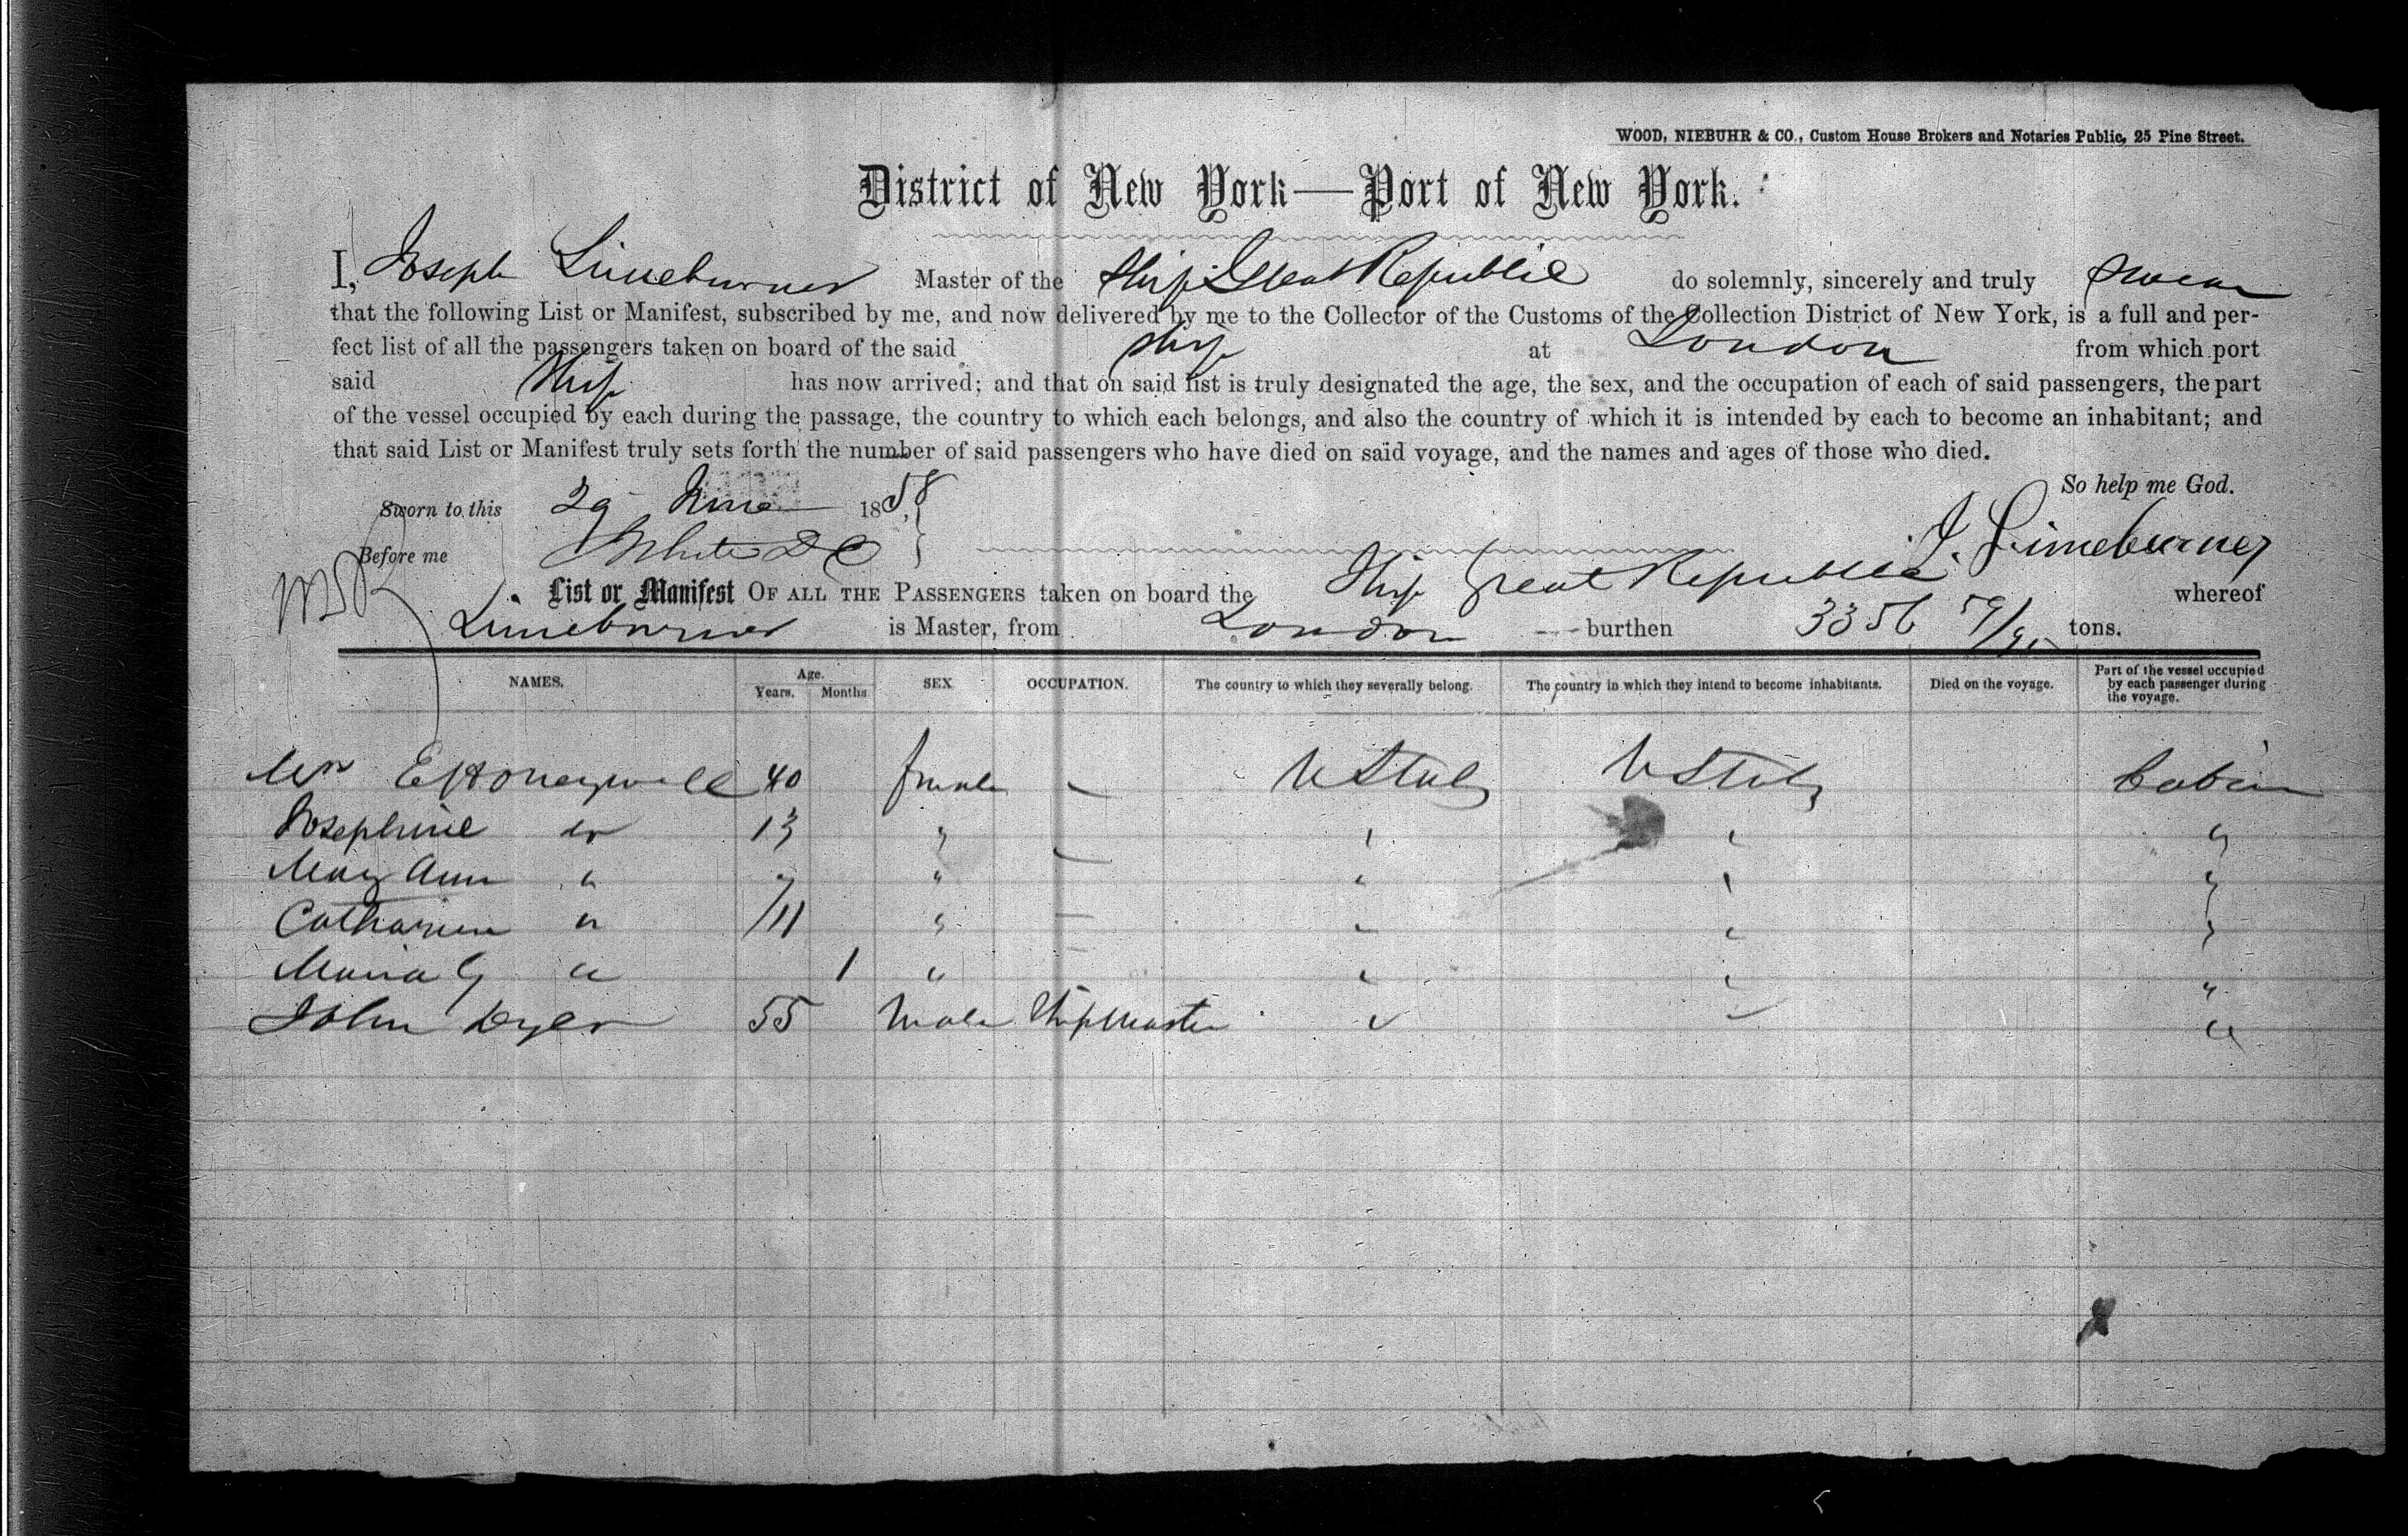 WOOD, NIEBUHR & CO., Custom House Brokers and Notaries Public, 25 Pine Street.
District of New York—Port of New York.
I, Joseph Limeburner Master of the Ship Great Republic do solemnly, sincerely and truly swear
that the following List or Manifest, subscribed by me, and now delivered by me to the Collector of the Customs of the Collection District of New York, is a full and per-
fect list of all the passengers taken on board of the said ship at London from which port
said Ship has now arrived; and that on said list is truly designated the age, the sex, and the occupation of each of said passengers, the part
of the vessel occupied by each during the passage, the country to which each belongs, and also the country of which it is intended by each to become an inhabitant; and
that said List or Manifest truly sets forth the number of said passengers who have died on said voyage, and the names and ages of those who died.
So help me God.
Sworn to this 29 June 1858
J. Limeburner
Before me White D C
List or Manifest OF ALL THE PASSENGERS taken on board the Ship Great Republic whereof
Limeburner is Master, from London burthen 3356 59/95 tons.
NAMES. Age. Years. Months SEX OCCUPATION. The country to which they severally belong. The country in which they intend to become inhabitants. Died on the voyage. Part of the vessel occupied by each passenger during the voyage.
Mrs E Honeywell 40 female — U States U States Cabin
Josephine do 13 " — " " "
Mary Ann " " " " "
Catharine " 11 " — " " "
Maria G " 1 " — " " "
John Dyer 55 Male Shipmaster " " "